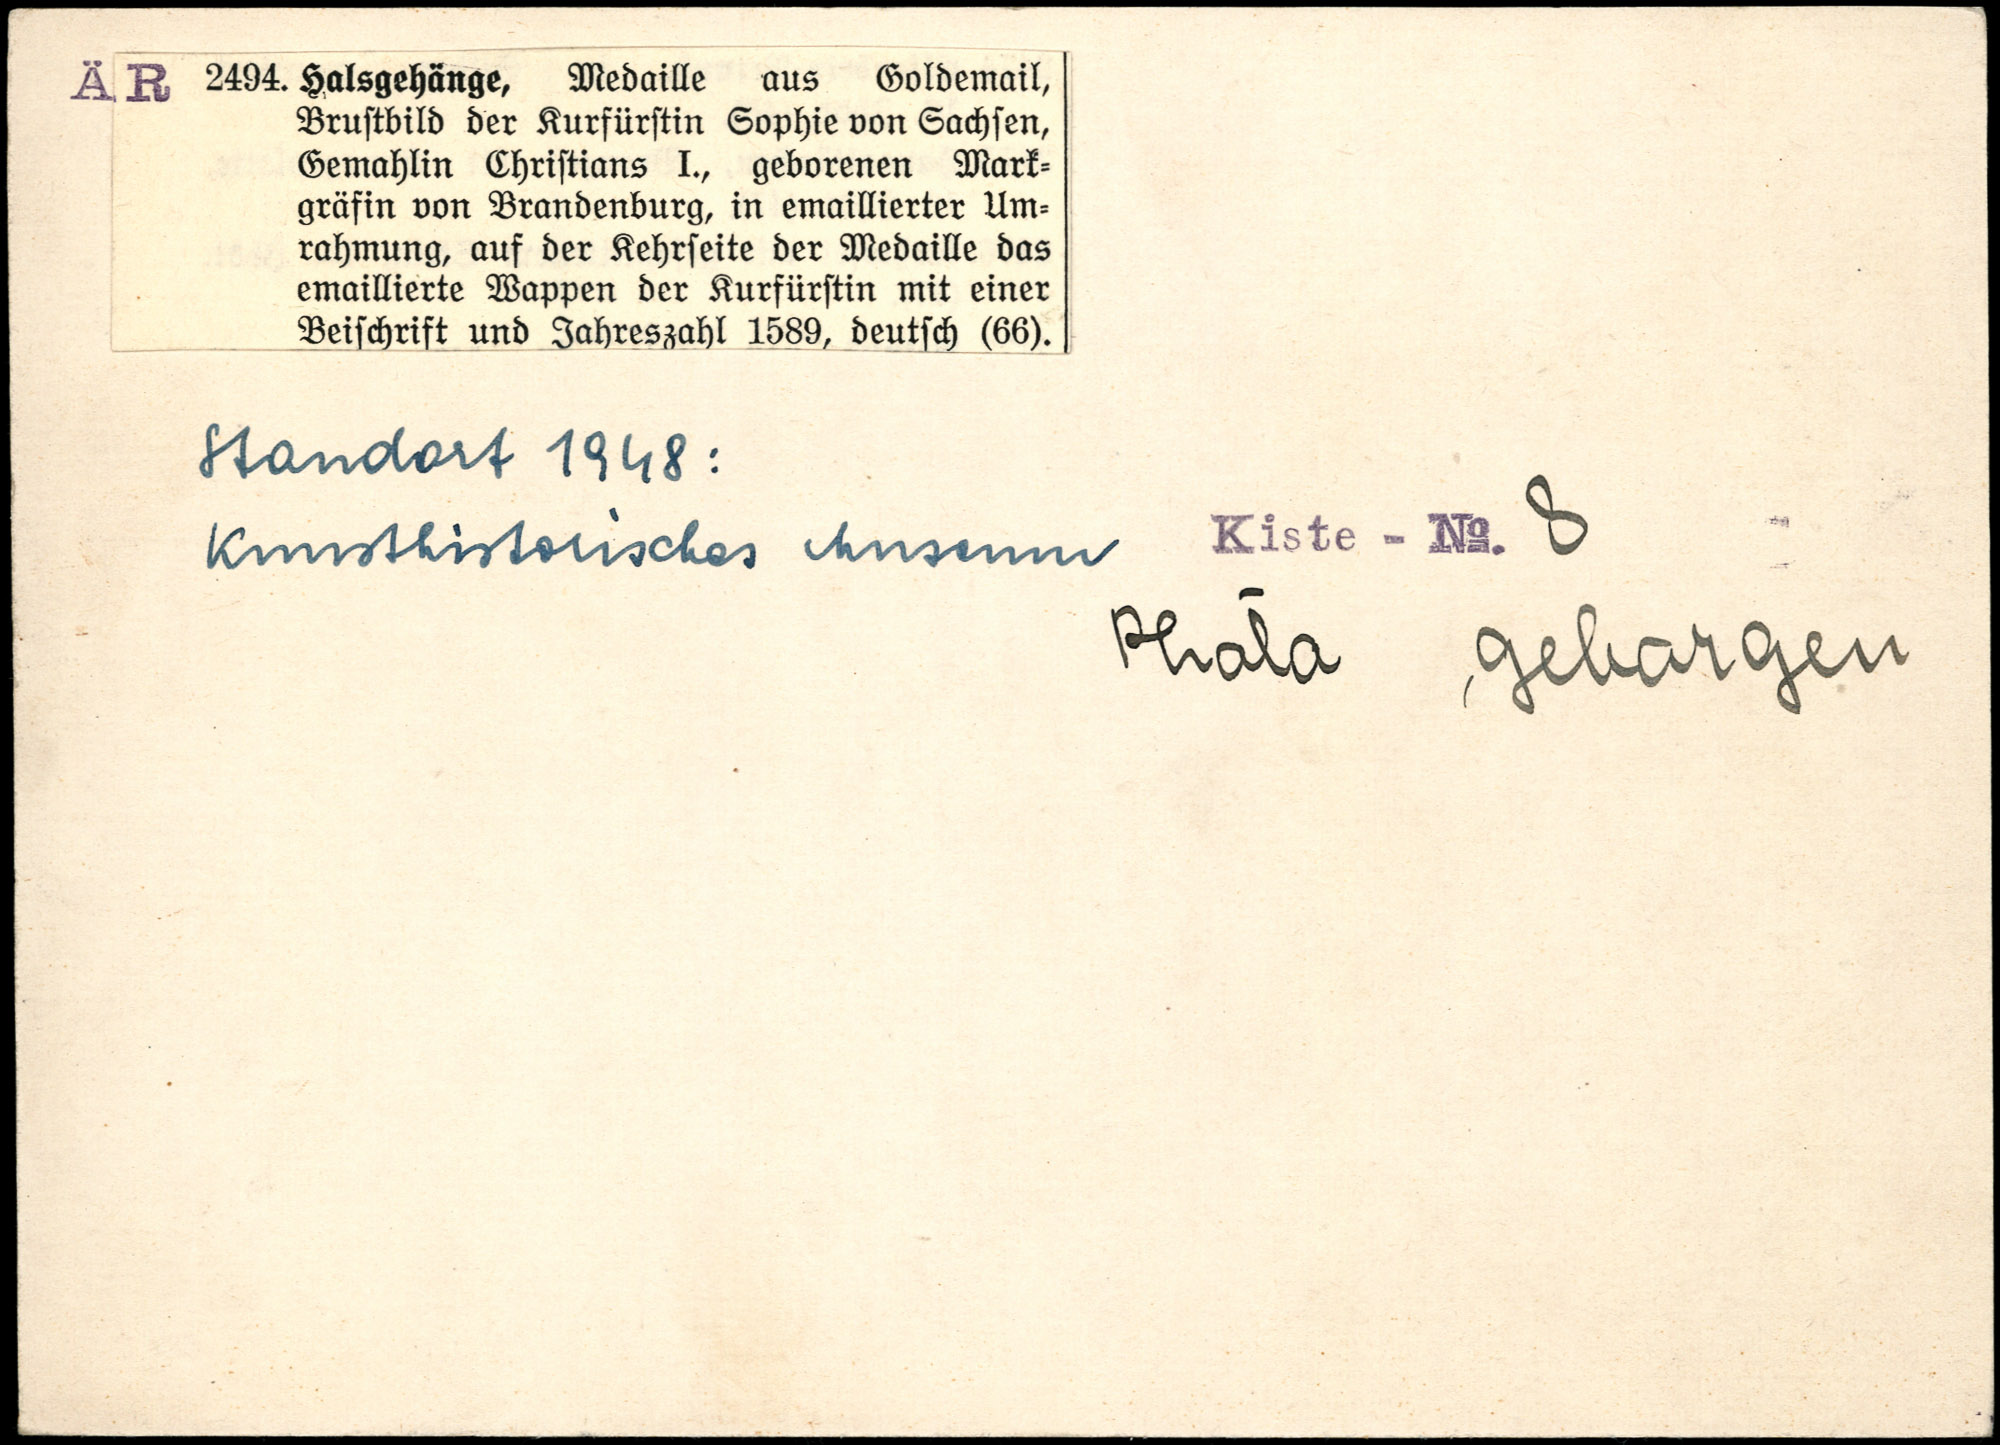 ÄR 2494. Halsgehänge, Medaille aus Goldemail,
Brustbild der Kurfürstin Sophie von Sachsen,
Gemahlin Christians I., geborenen Mark-
gräfin von Brandenburg, in emaillierter Um-
rahmung, auf der Kehrseite der Medaille das
emaillierte Wappen der Kurfürstin mit einer
Beischrift und Jahreszahl 1589, deutsch (66).
Standort 1948:
Kunsthistorisches Museum
Kiste - No. 8
geborgen